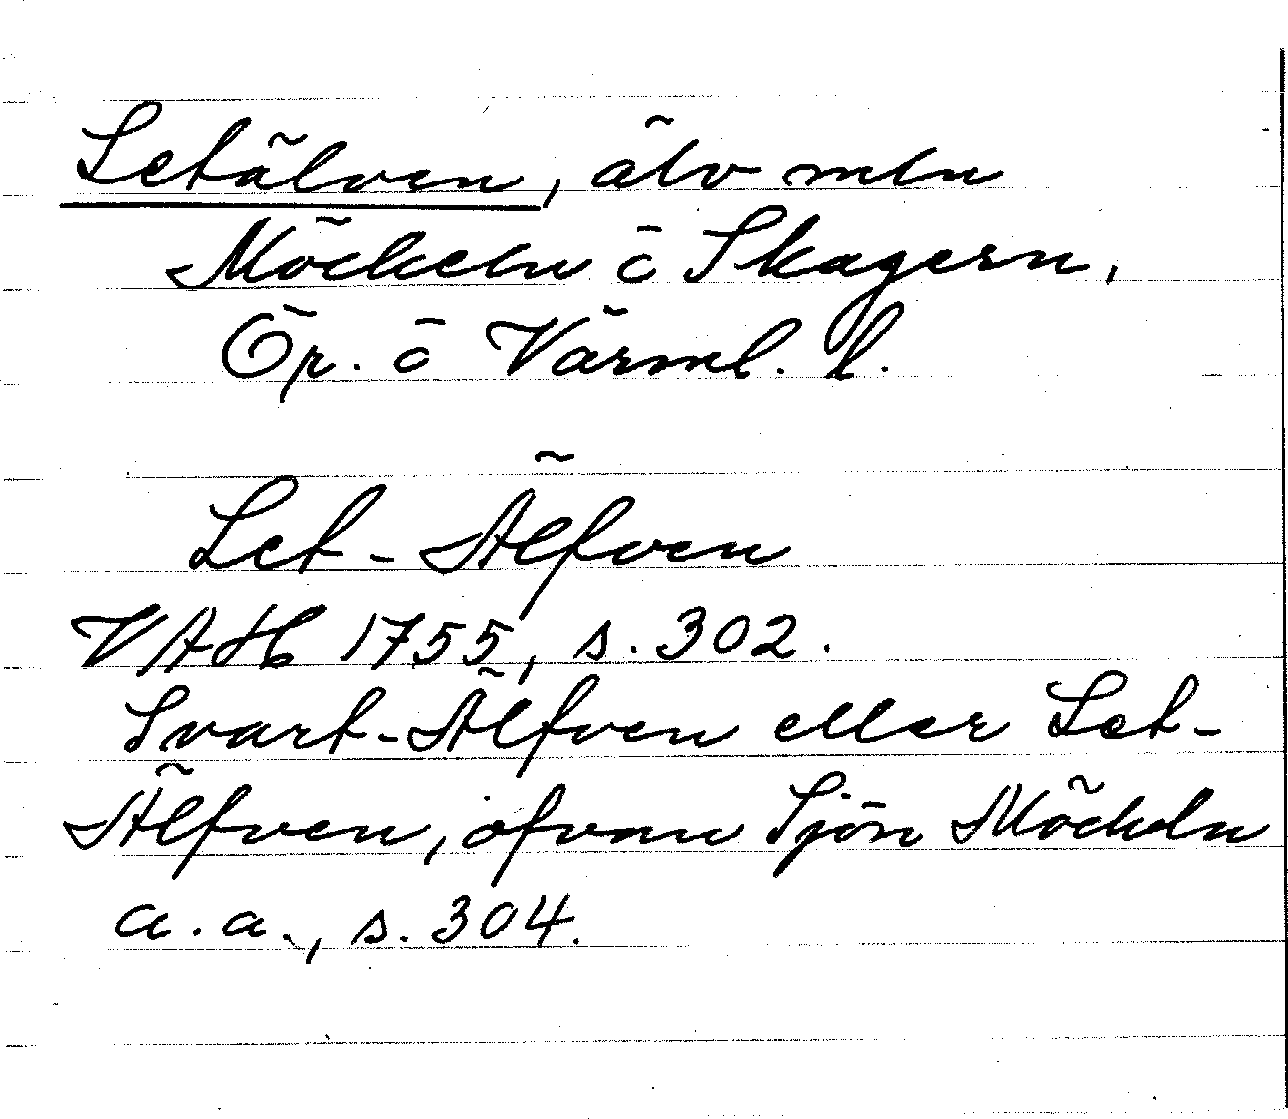 Letälven, älv mln
Möckeln o Skagern,
Ör. o Värml. l.
Let-Älfven
VAH 1755, s. 302.
Svart-Älfven eller Let-
Älfven, ofvan Sjön Möckeln
a. a., s. 304.